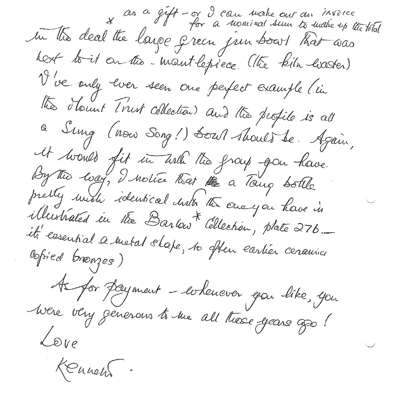 as a gift - or I can make out an invoice
for a nominal sum to make up the total
in the deal * the large green jun bowl that was
next to it on the mantlepiece (the kiln waster)
I've only ever seen one perfect example (in
the Mount Trust Collection) and the profile is all
a Sung (now Song!) bowl should be. Again,
it would fit in with the group you have.
By the way, I notice that a Tang bottle
pretty much identical with the one you have is
illustrated in the Barlow * Collection, plate 27b -
it's essential a metal shape, so often earlier ceramics
copied bronzes)
As for payment - whenever you like, you
were very generous to me all those years ago!
Love
Kenneth.